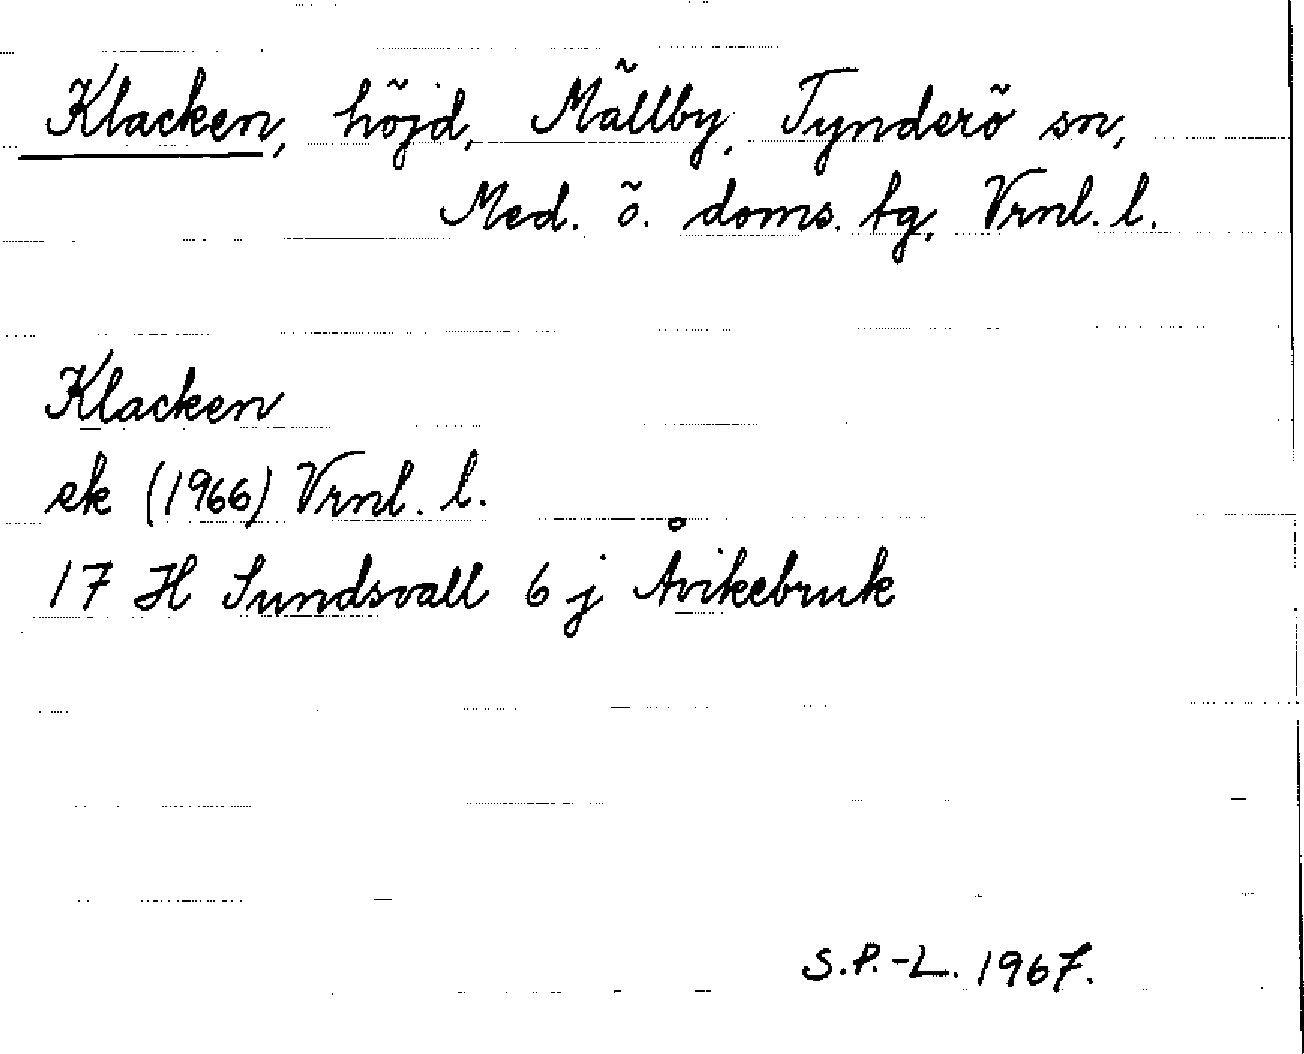 Klacken, höjd, Mällby, Tynderö sn,
Med. ö. doms. tg, Vrnl. l.
Klacken
ek (1966) Vrnl. l.
17 H Sundsvall 6 j Åvikebruk
S.P.-L. 1967.